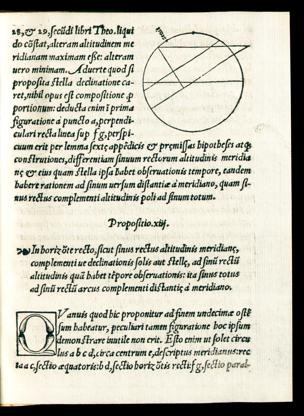 28, & 29. secūdi libri Theo. liqui
do cōstat, alteram altitudinem me
ridianam maximam eße: alteram
uero minimam. Aduerte quod si
proposita stella declinatione ca-
ret, nihil opus est compositione, p
portionum: deducta enim î prima
figuratione à puncto a, perpendi-
culari recta linea sup f g, perspi-
cuum erit per lemma sexte appēdicis & premissas hipotheses atq;
constructiones, differentiam sinuum rectorum altitudinis meridia
nę & eius quam stella ipsa habet obseruationis tempore, eandem
habere rationem ad sinum uersum distantiæ à meridiano, quam si-
nus rectus complementi altitudinis poli ad sinum totum.
Propositio.xiij.
In horizōte recto, sicut sinus rectus altitudinis meridianę,
complementi ue declinationis solis aut stellę, ad sinū rectū
altitudinis quā habet tēpore obseruationis: ita sinus totus
ad sinū rectū arcus complementi distantię à meridiano.
QVanuis quod hic proponitur ad finem undecimæ ostē
sum habeatur, peculiari tamen figuratione hoc ipsum
demonstrare inutile non erit. Esto enim ut solet circu
lus a b c d, circa centrum e, descriptus meridianus: rec
ta a c, sectio æquatoris: b d, sectio horizōtis recti: f g, sectio paral-